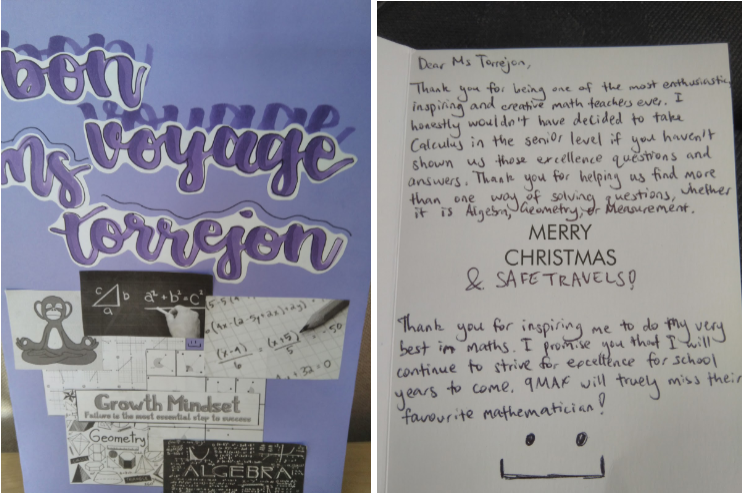 bon
voyage
ms
torrejon
c b
a
a² + b² = c²
(x-4)
6
(x+5)
5
+ 32 = 0
Growth Mindset
Failure is the most essential step to success
Geometry
ALGEBRA
Dear Ms Torrejon,
Thank you for being one of the most enthusiastic,
inspiring and creative math teachers ever. I
honestly wouldn't have decided to take
Calculus in the senior level if you haven't
shown us those excellence questions and
answers. Thank you for helping us find more
than one way of solving questions, whether
it is Algebra, Geometry, or Measurement.
MERRY
CHRISTMAS
& SAFE TRAVELS!
Thank you for inspiring me to do my very
best in maths. I promise you that I will
continue to strive for excellence for school
years to come. 9MAF will truely miss their
favourite mathematician!